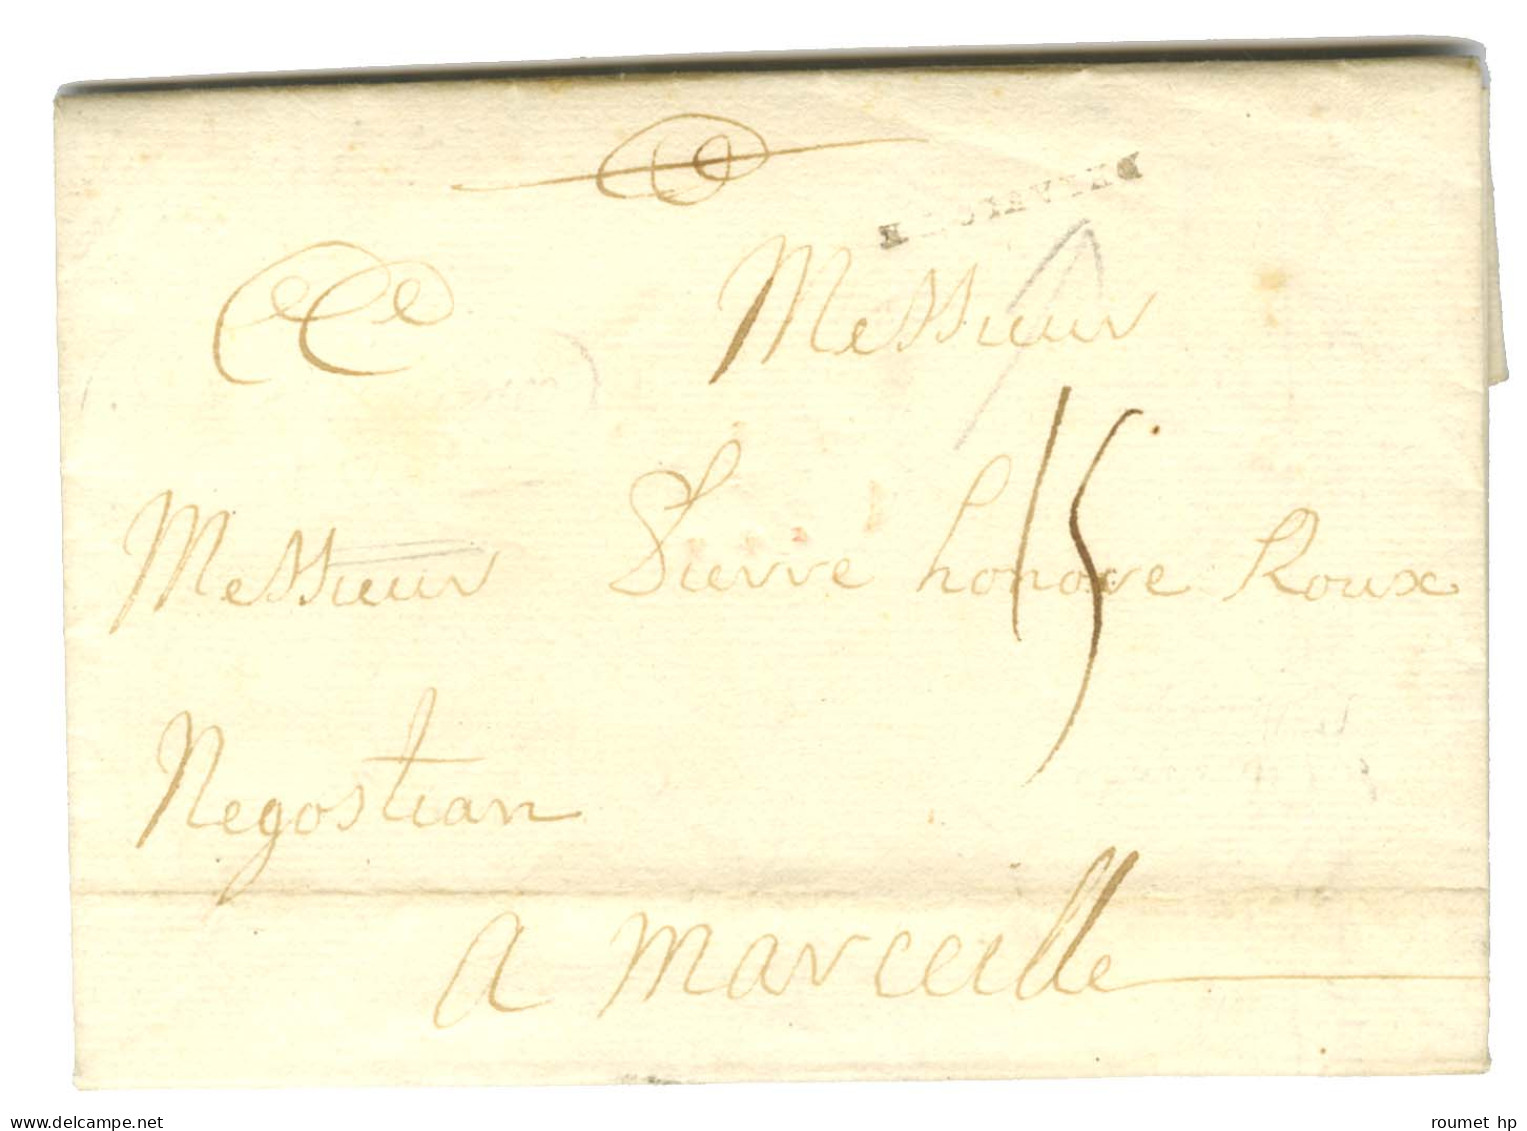 Messieur
15
Messieur Pierre honore Roux
Negostian
a marceille
www.delcampe.net
roumet hp